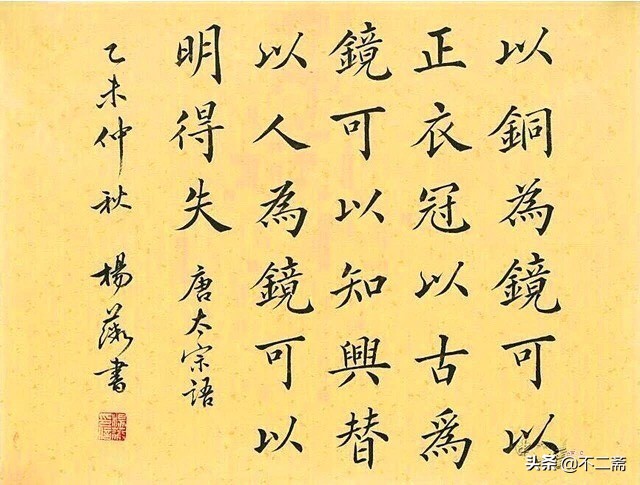 以銅為鏡可以
正衣冠以古爲
鏡可以知興替
以人為鏡可以
明得失 唐太宗語
乙未仲秋 楊書
头条 @不二斋